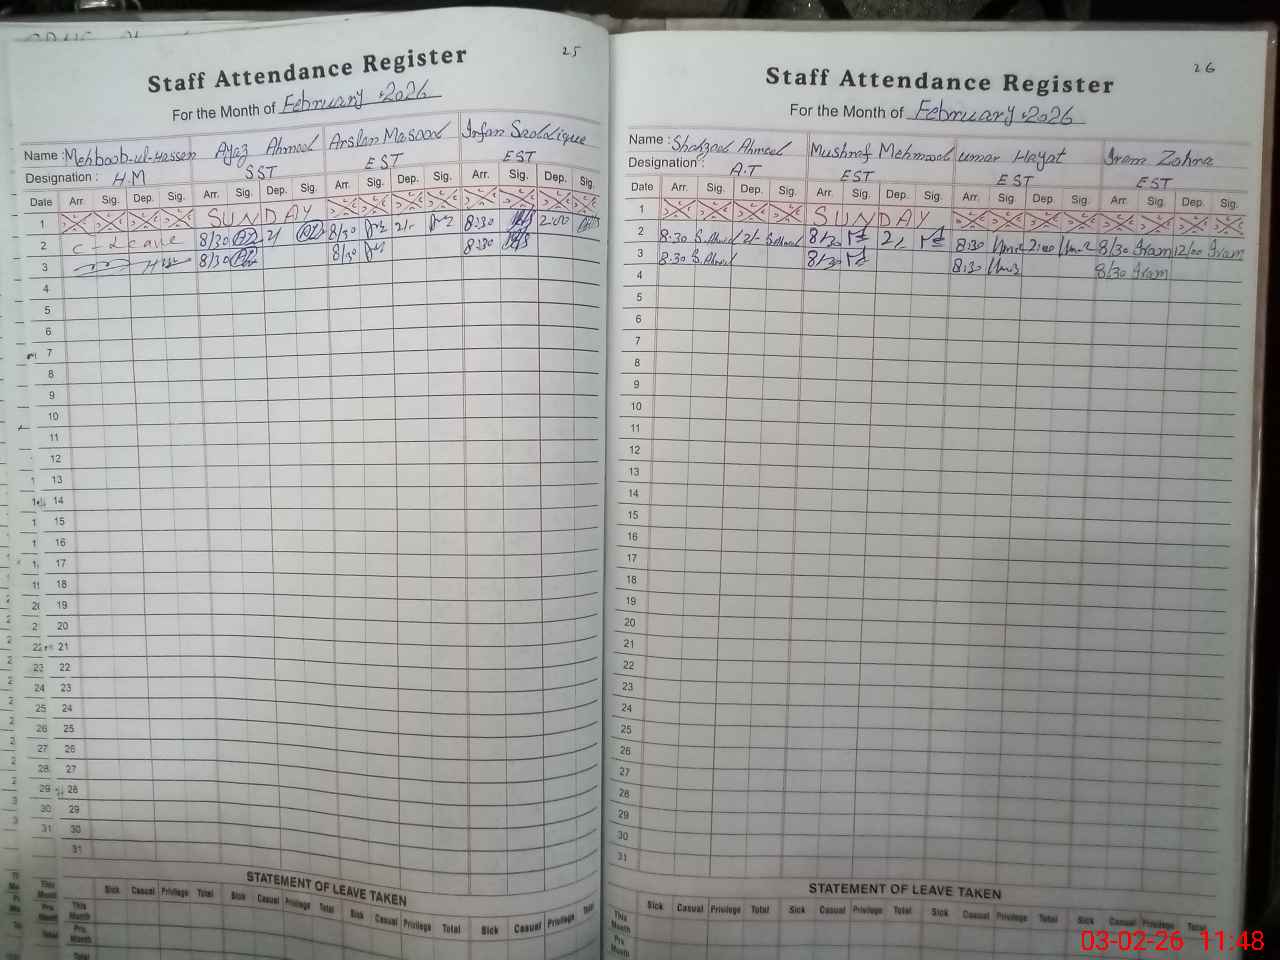 25
Staff Attendance Register
For the Month of February 2026
Name : Mehboob-ul-Hassan Ayaz Ahmed Arslan Masood Irfan Saddique
Designation : H.M SST EST EST
Date Arr. Sig. Dep. Sig. Arr. Sig. Dep. Sig. Arr. Sig. Dep. Sig. Arr. Sig. Dep. Sig.
1 SUNDAY
2 C-Leave 8/30 2/ 8/30 2/- 8:30 2:00
3 8/30 8/30 8:30
4
5
6
7
8
9
10
11
12
13
14
15
16
17
18
19
20
21
22
23
24
25
26
27
28
29
30
31
STATEMENT OF LEAVE TAKEN
Sick Casual Privilege Total Sick Casual Privilege Total Sick Casual Privilege Total Sick Casual Privilege Total
This Month
Prv. Month
Total
26
Staff Attendance Register
For the Month of February 2026
Name : Shahzad Ahmed Mushraf Mehmood umar Hayat Iram Zahra
Designation : A.T EST EST EST
Date Arr. Sig. Dep. Sig. Arr. Sig. Dep. Sig. Arr. Sig Dep Sig. Arr. Sig. Dep. Sig.
1 SUNDAY
2 8:30 S.Ahmed 2/- S.Ahmed 8/30 2/ 8:30 2:00 8/30 Iram 12/00 Iram
3 8:30 S.Ahmed 8/30 8:30 8/30 Iram
4
5
6
7
8
9
10
11
12
13
14
15
16
17
18
19
20
21
22
23
24
25
26
27
28
29
30
31
STATEMENT OF LEAVE TAKEN
Sick Casual Privilege Total Sick Casual Privilege Total Sick Casual Privilege Total Sick Casual Privilege Total
This Month
Prv. Month
03-02-26 11:48